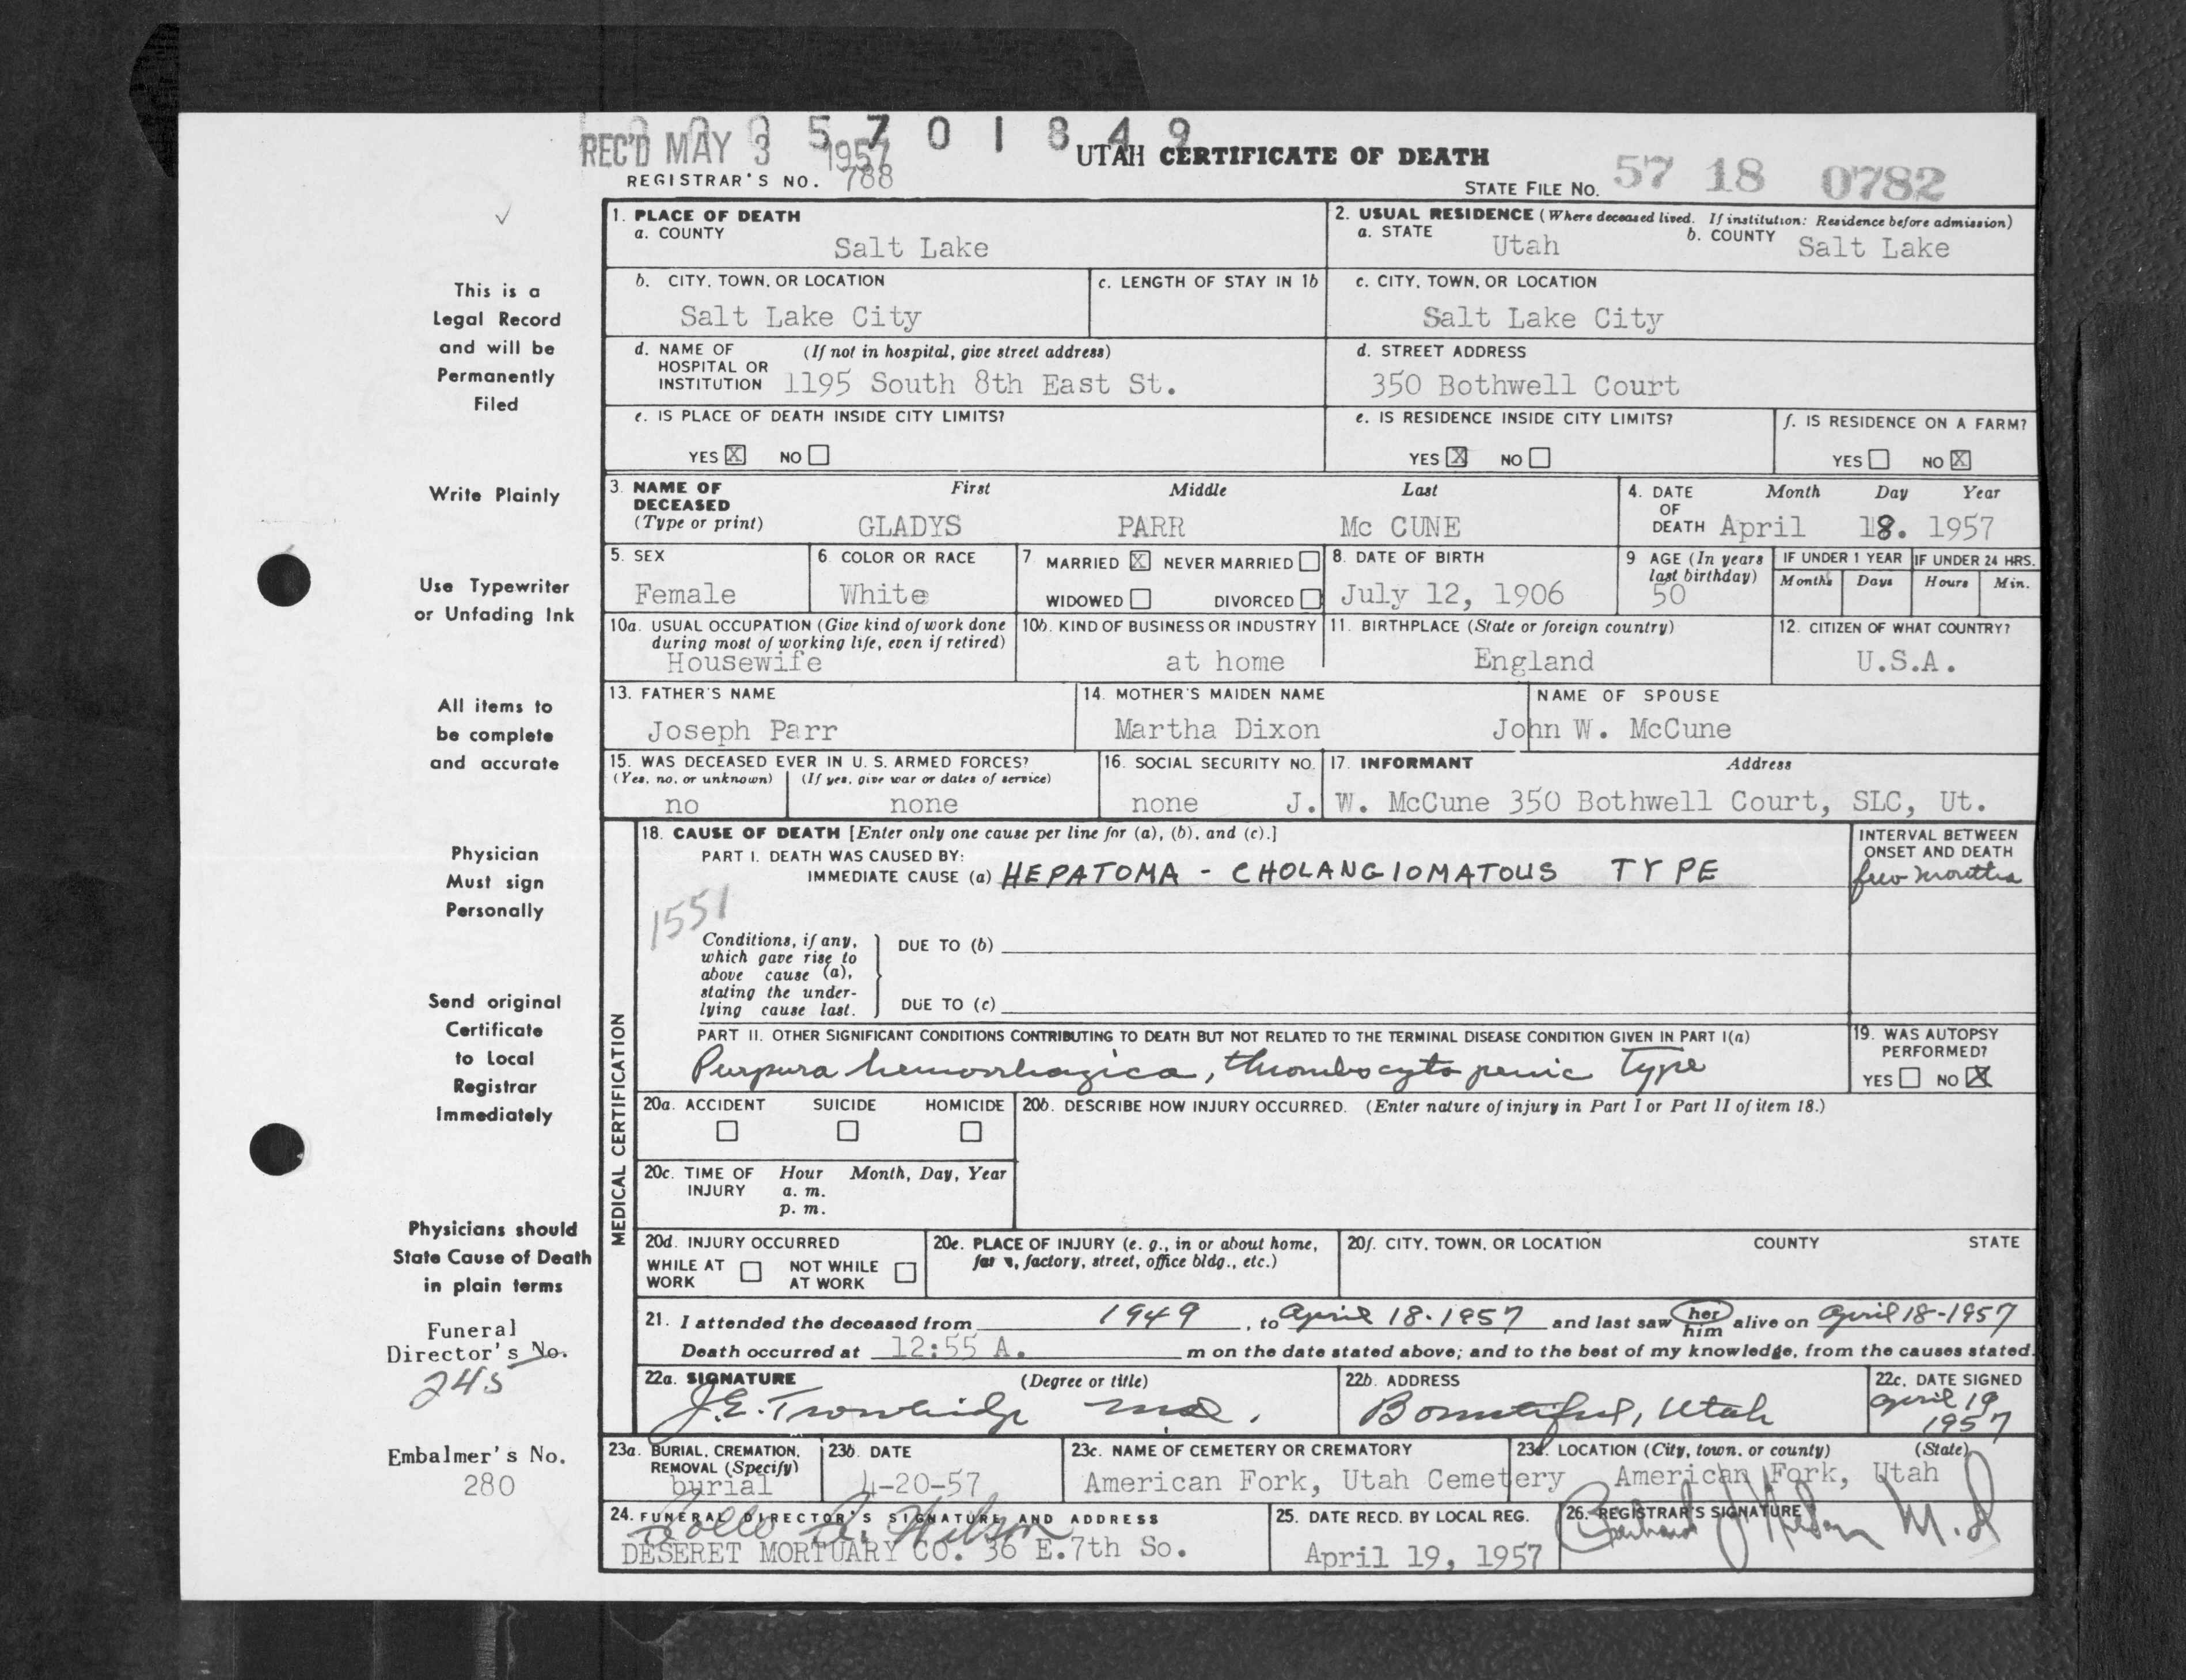 REC'D MAY 3 1957
5 7 0 1 8 4 9
UTAH CERTIFICATE OF DEATH
REGISTRAR'S NO. 788
STATE FILE NO. 57 18 0782
This is a
Legal Record
and will be
Permanently
Filed
Write Plainly
Use Typewriter
or Unfading Ink
All items to
be complete
and accurate
Physician
Must sign
Personally
Send original
Certificate
to Local
Registrar
Immediately
Physicians should
State Cause of Death
in plain terms
Funeral
Director's No.
245
Embalmer's No.
280
1. PLACE OF DEATH
a. COUNTY
Salt Lake
2. USUAL RESIDENCE (Where deceased lived. If institution: Residence before admission)
a. STATE Utah b. COUNTY Salt Lake
b. CITY, TOWN, OR LOCATION
Salt Lake City
c. LENGTH OF STAY IN 1b
c. CITY, TOWN, OR LOCATION
Salt Lake City
d. NAME OF (If not in hospital, give street address)
HOSPITAL OR
INSTITUTION 1195 South 8th East St.
d. STREET ADDRESS
350 Bothwell Court
e. IS PLACE OF DEATH INSIDE CITY LIMITS?
YES X NO
e. IS RESIDENCE INSIDE CITY LIMITS?
YES X NO
f. IS RESIDENCE ON A FARM?
YES NO X
3. NAME OF DECEASED (Type or print)
First Middle Last
GLADYS PARR Mc CUNE
4. DATE OF DEATH
Month Day Year
April 18. 1957
5. SEX
Female
6. COLOR OR RACE
White
7 MARRIED X NEVER MARRIED
WIDOWED DIVORCED
8. DATE OF BIRTH
July 12, 1906
9 AGE (In years
last birthday)
50
IF UNDER 1 YEAR
Months Days
IF UNDER 24 HRS.
Hours Min.
10a. USUAL OCCUPATION (Give kind of work done
during most of working life, even if retired)
Housewife
10b. KIND OF BUSINESS OR INDUSTRY
at home
11. BIRTHPLACE (State or foreign country)
England
12. CITIZEN OF WHAT COUNTRY?
U.S.A.
13. FATHER'S NAME
Joseph Parr
14. MOTHER'S MAIDEN NAME
Martha Dixon
NAME OF SPOUSE
John W. McCune
15. WAS DECEASED EVER IN U. S. ARMED FORCES?
(Yes, no, or unknown) (If yes, give war or dates of service)
no none
16. SOCIAL SECURITY NO.
none
17. INFORMANT Address
J. W. McCune 350 Bothwell Court, SLC, Ut.
MEDICAL CERTIFICATION
18. CAUSE OF DEATH [Enter only one cause per line for (a), (b), and (c).]
PART I. DEATH WAS CAUSED BY:
IMMEDIATE CAUSE (a) HEPATOMA - CHOLANGIOMATOUS TYPE
INTERVAL BETWEEN
ONSET AND DEATH
few months
1551
Conditions, if any,
which gave rise to
above cause (a),
stating the under-
lying cause last.
DUE TO (b)
DUE TO (c)
PART II. OTHER SIGNIFICANT CONDITIONS CONTRIBUTING TO DEATH BUT NOT RELATED TO THE TERMINAL DISEASE CONDITION GIVEN IN PART I(a)
Purpura hemorrhagica, thrombocytopenic type
19. WAS AUTOPSY
PERFORMED?
YES NO X
20a. ACCIDENT SUICIDE HOMICIDE
20b. DESCRIBE HOW INJURY OCCURRED. (Enter nature of injury in Part I or Part II of item 18.)
20c. TIME OF Hour Month, Day, Year
INJURY a. m.
p. m.
20d. INJURY OCCURRED
WHILE AT WORK NOT WHILE AT WORK
20e. PLACE OF INJURY (e. g., in or about home,
farm, factory, street, office bldg., etc.)
20f. CITY, TOWN, OR LOCATION COUNTY STATE
21. I attended the deceased from 1949, to April 18-1957 and last saw her him alive on April 18-1957
Death occurred at 12:55 A. m on the date stated above; and to the best of my knowledge, from the causes stated.
22a. SIGNATURE (Degree or title)
J.E. Trowbridge M.D.
22b. ADDRESS
Bountiful, Utah
22c. DATE SIGNED
April 19
1957
23a. BURIAL, CREMATION,
REMOVAL (Specify)
burial
23b. DATE
4-20-57
23c. NAME OF CEMETERY OR CREMATORY
American Fork, Utah Cemetery
23d. LOCATION (City, town, or county) (State)
American Fork, Utah
24. FUNERAL DIRECTOR'S SIGNATURE AND ADDRESS
DESERET MORTUARY CO. 36 E.7th So.
25. DATE RECD. BY LOCAL REG.
April 19, 1957
26. REGISTRAR'S SIGNATURE
M.D